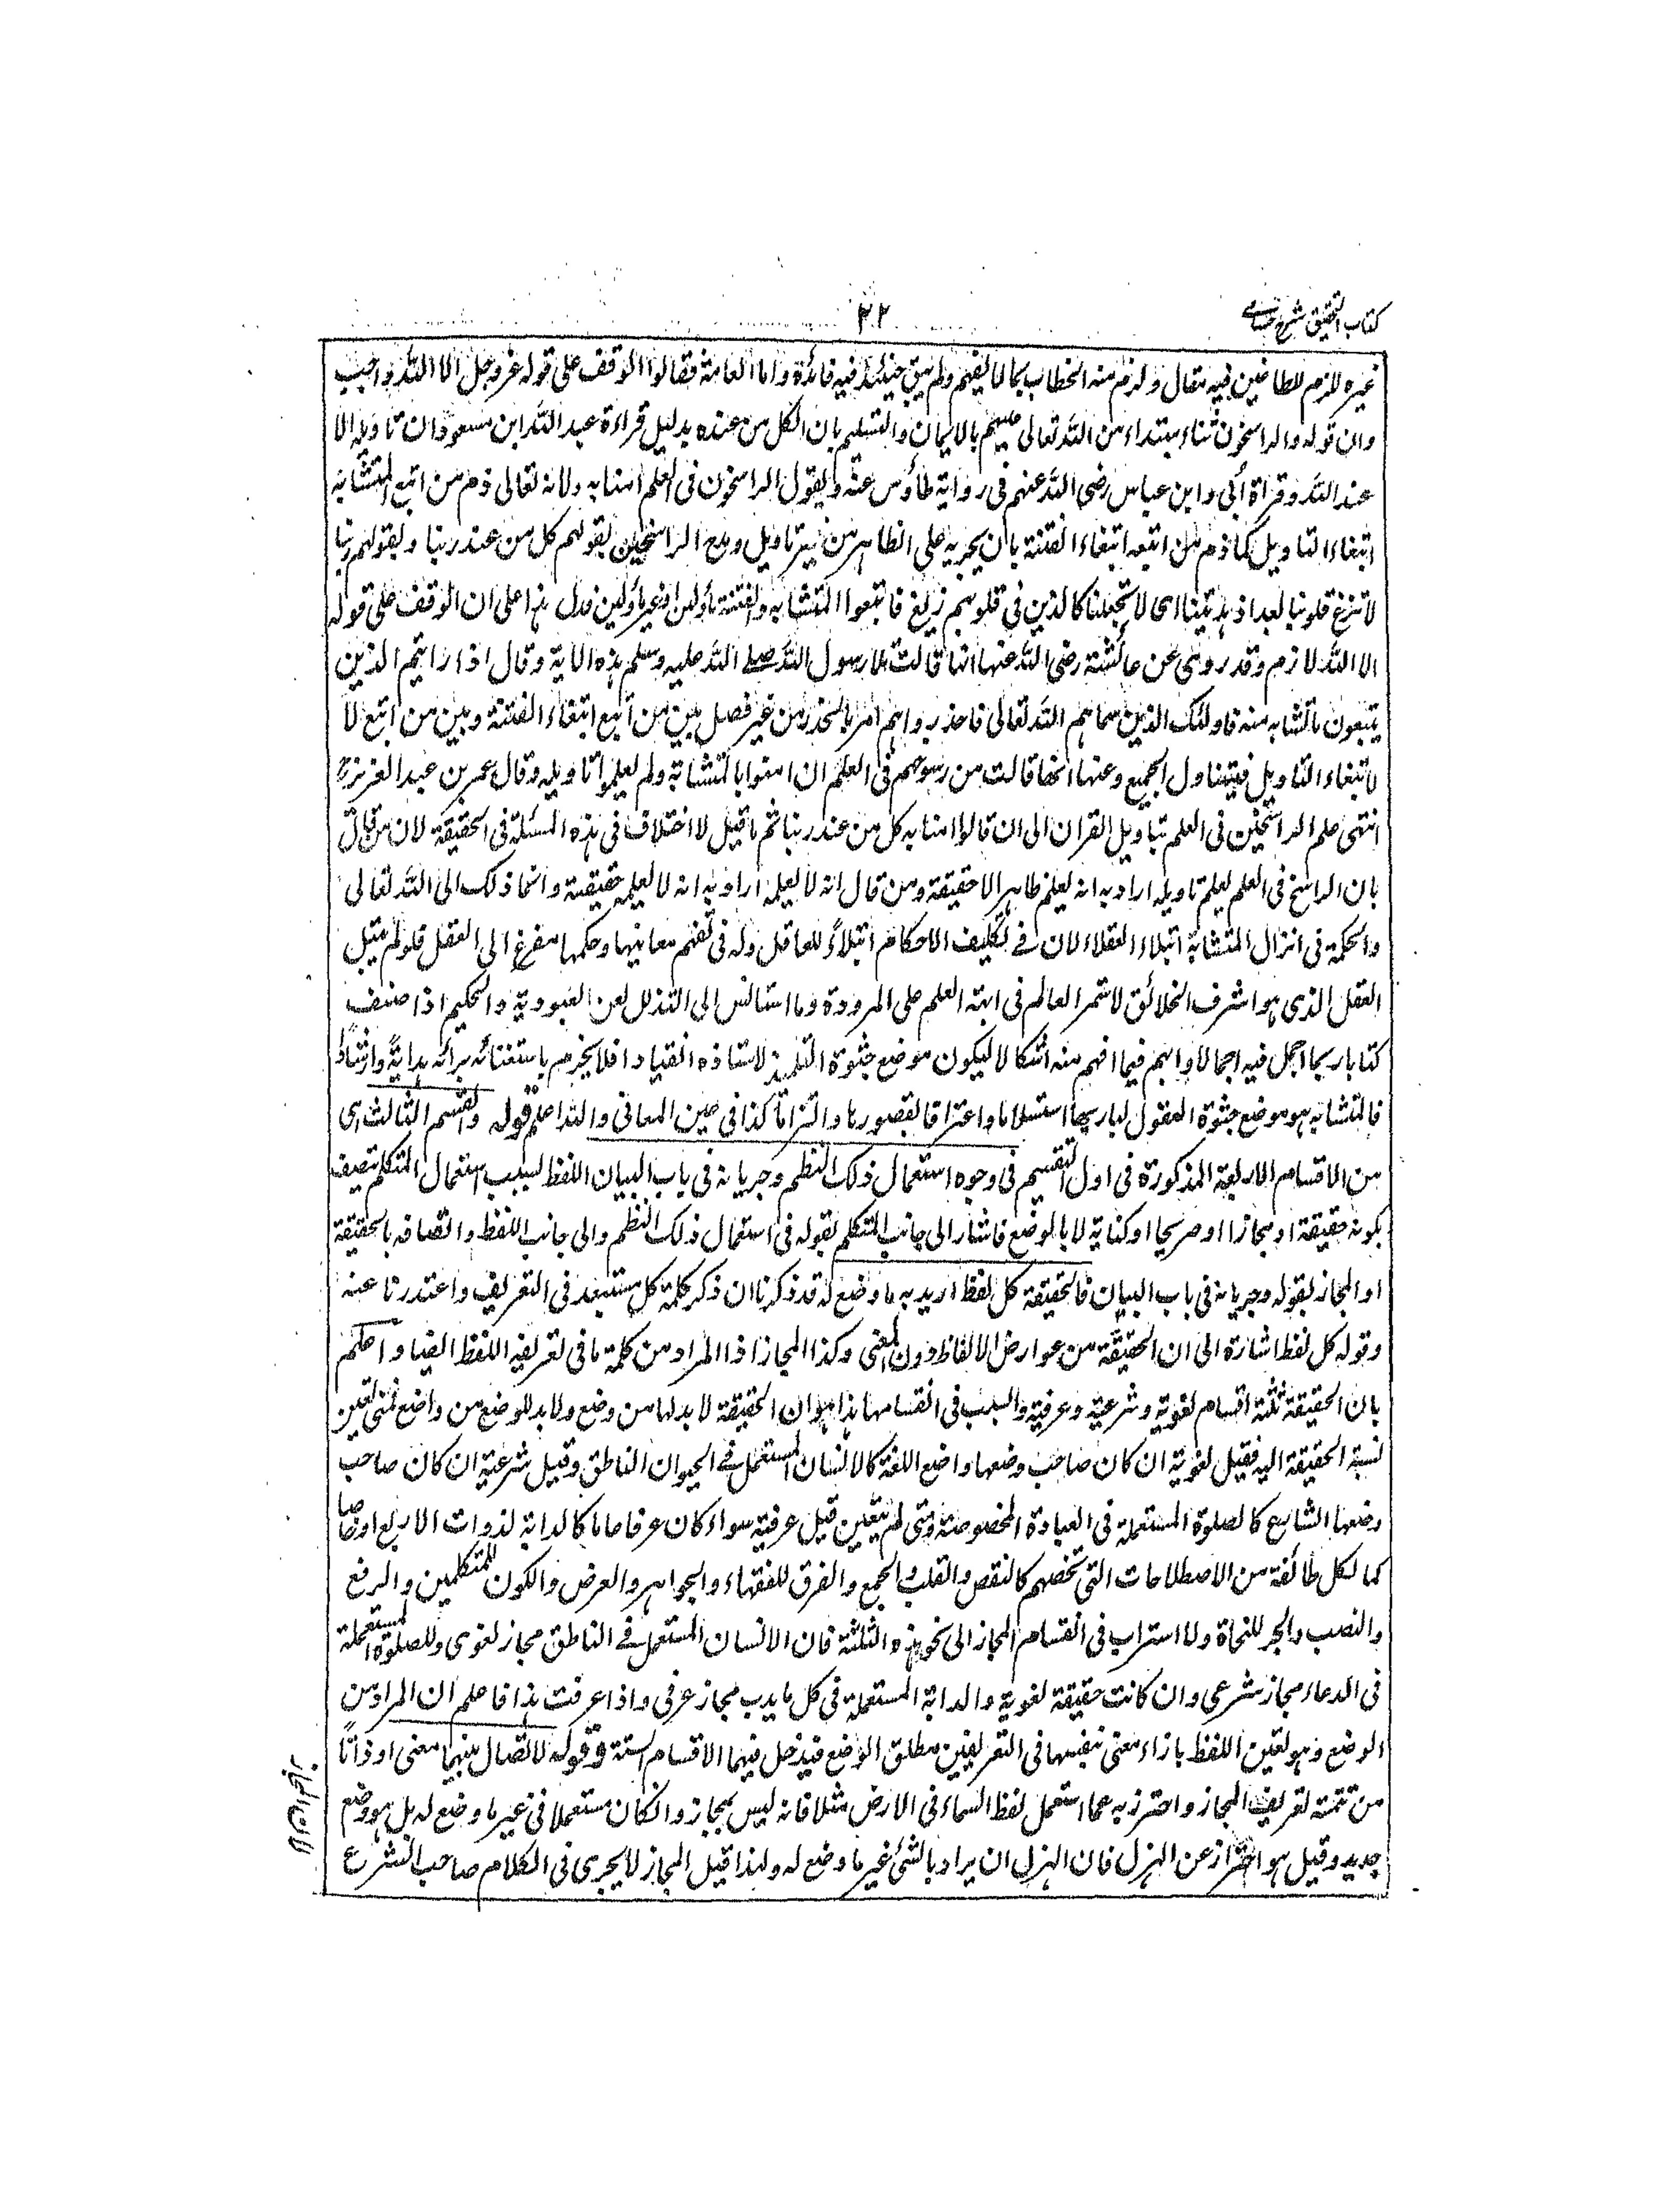 كتاب التحقيق شرح حسامى
٣٢
غيره للزم للطاعنين فيه مقال ولزم منه الخطاب بما لا يفهم ولم يبق حينئذ فيه فائدة واما العامة فقالوا الوقف على قوله عز وجل الا الله واجب
وان قوله والراسخون ثناء مبتداء من الله تعالى عليهم بالايمان والتسليم بان الكل من عنده بدليل قراءة عبد الله ابن مسعود ان تاويله الا
عند الله وقراة أبى وابن عباس رضى الله عنهم فى رواية طاؤس عنه ويقول الراسخون فى العلم امنا به ولانه تعالى ذم من اتبع المتشابه
ابتغاء التاويل كما ذم من اتبعه ابتغاء الفتنة بان يجريه على الظاهر من غير تاويل ومدح الراسخين بقولهم كل من عند ربنا وبقولهم ربنا
لا تزغ قلوبنا بعد اذ هديتنا اى لا تجعلنا كالذين فى قلوبهم زيغ فاتبعوا المتشابه والفتنة مأولين او غير مأولين فدل هذا على ان الوقف على قوله
الا الله لازم وقد روى عن عائشة رضى الله عنها انها قالت تلا رسول الله صلى الله عليه وسلم هذه الاية وقال اذا رايتم الذين
يتبعون ما تشابه منه فاولئك الذين سماهم الله تعالى فاحذروهم امر بالحذر من غير فصل بين من اتبع ابتغاء الفتنة وبين من اتبع لا
لابتغاء التاويل فيتناول الجميع وعنها انها قالت من رسوخهم فى العلم ان امنوا بالمتشابه ولم يعلموا تاويله وقال عمر بن عبد العزيز
انتهى علم الراسخين فى العلم بتاويل القران الى ان قالوا امنا به كل من عند ربنا ثم ما قيل لا اختلاف فى هذه المسئلة فى الحقيقة لان من قال
بان الراسخ فى العلم يعلم تاويله اراد به انه يعلم ظاهرا لا حقيقة ومن قال انه لا يعلمه اراد به انه لا يعلمه حقيقة وانما ذلك الى الله تعالى
والحكمة فى انزال المتشابه ابتلاء العقلاء لان فى تكليف الاحكام ابتلاءً للعاقل وله فى تفهم معانيها وحكمها مفزع الى العقل فلو لم يبتل
العقل الذى هو اشرف الخلائق لاستمر العالم فى ابهة العلم على المرودة وما استانس الى التذلل لعز العبودية والحكيم اذا صنف
كتابا ربما اجمل فيه اجمالا وابهم فيما افهم منه اشكالا ليكون موضع جثوة التلميذ لاستاذه انقيادا فلا يحرم باستغنائه برائه هدايةً وارشاداً
فالمتشابه هو موضع جثوة العقول لباريها استسلاما واعترافا بقصورها والتزاما كذا فى عين المعانى والله اعلم قوله والقسم الثالث اى
من الاقسام الاربعة المذكورة فى اول التقسيم فى وجوه استعمال ذلك النظم وجريانه فى باب البيان اللفظ بسبب استعمال المتكلم يتصف
بكونه حقيقة او مجازا او صريحا او كناية لا بالوضع فاشار الى جانب المتكلم بقوله فى استعمال ذلك النظم والى جانب اللفظ واتصافه بالحقيقة
او المجاز بقوله وجريانه فى باب البيان فالحقيقة كل لفظ اريد به ما وضع له قد ذكرنا ان ذكر كلمة كل مستبعد فى التعريف واعتذرنا عنه
وقوله كل لفظ اشارة الى ان الحقيقة من عوارض الالفاظ دون المعنى وكذا المجاز اذ المراد من كلمة ما فى تعريفه اللفظ ايضا واعلم
بان الحقيقة ثلثة اقسام لغوية وشرعية وعرفية والسبب فى انقسامها هذا هو ان الحقيقة لا بد لها من وضع ولا بد للوضع من واضع فمتى تعين
نسبة الحقيقة اليه فقيل لغوية ان كان صاحب وضعها واضع اللغة كالانسان المستعمل فى الحيوان الناطق وقيل شرعية ان كان صاحب
وضعها الشارع كالصلوة المستعملة فى العبادة المخصوصة ومتى لم يتعين قيل عرفية سواء كان عرفا عاما كالدابة لذوات الاربع او خاصا
كما لكل طائفة من الاصطلاحات التى تخصهم كالنقض والقلب والجمع والفرق للفقهاء والجواهر والعرض والكون للمتكلمين والرفع
والنصب والجر للنحاة ولا استراب فى انقسام المجاز الى نحو هذه الثلثة فان الانسان المستعمل فى الناطق مجاز لغوى والصلوة المستعملة
فى الدعاء مجاز شرعى وان كانت حقيقة لغوية والدابة المستعملة فى كل ما يدب مجاز عرفى واذا عرفت هذا فاعلم ان المراد من
الوضع وهو تعين اللفظ بازاء معنى بنفسها فى التعريفين مطلق الوضع فيدخل فيهما الاقسام الستة وقوله لاتصال بينهما معنى او ذاتًا
من تتمة تعريف المجاز واحترز به عما استعمل لفظ السماء فى الارض مثلا فانه ليس بمجاز وانكان مستعملا فى غير ما وضع له بل هو وضع
جديد وقيل هو احتراز عن الهزل فان الهزل ان يراد بالشئ غير ما وضع له ولهذا قيل المجاز لا يجرى فى الكلام صاحب الشرع